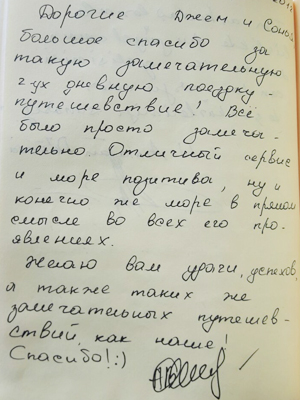 Дорогие Джем и
большое спасибо за
такую замечательную
2-ух дневную поездку-
путешевствие! Всё
было просто замеча-
тельно. Отличный сервис
и море позитива, ну и
конечно же море в прямом
смысле во всех его про-
явлениях.
Желаю вам удачи, успехов,
а также таких же
замечательных путешев-
ствий, как наше!
Спасибо!:)